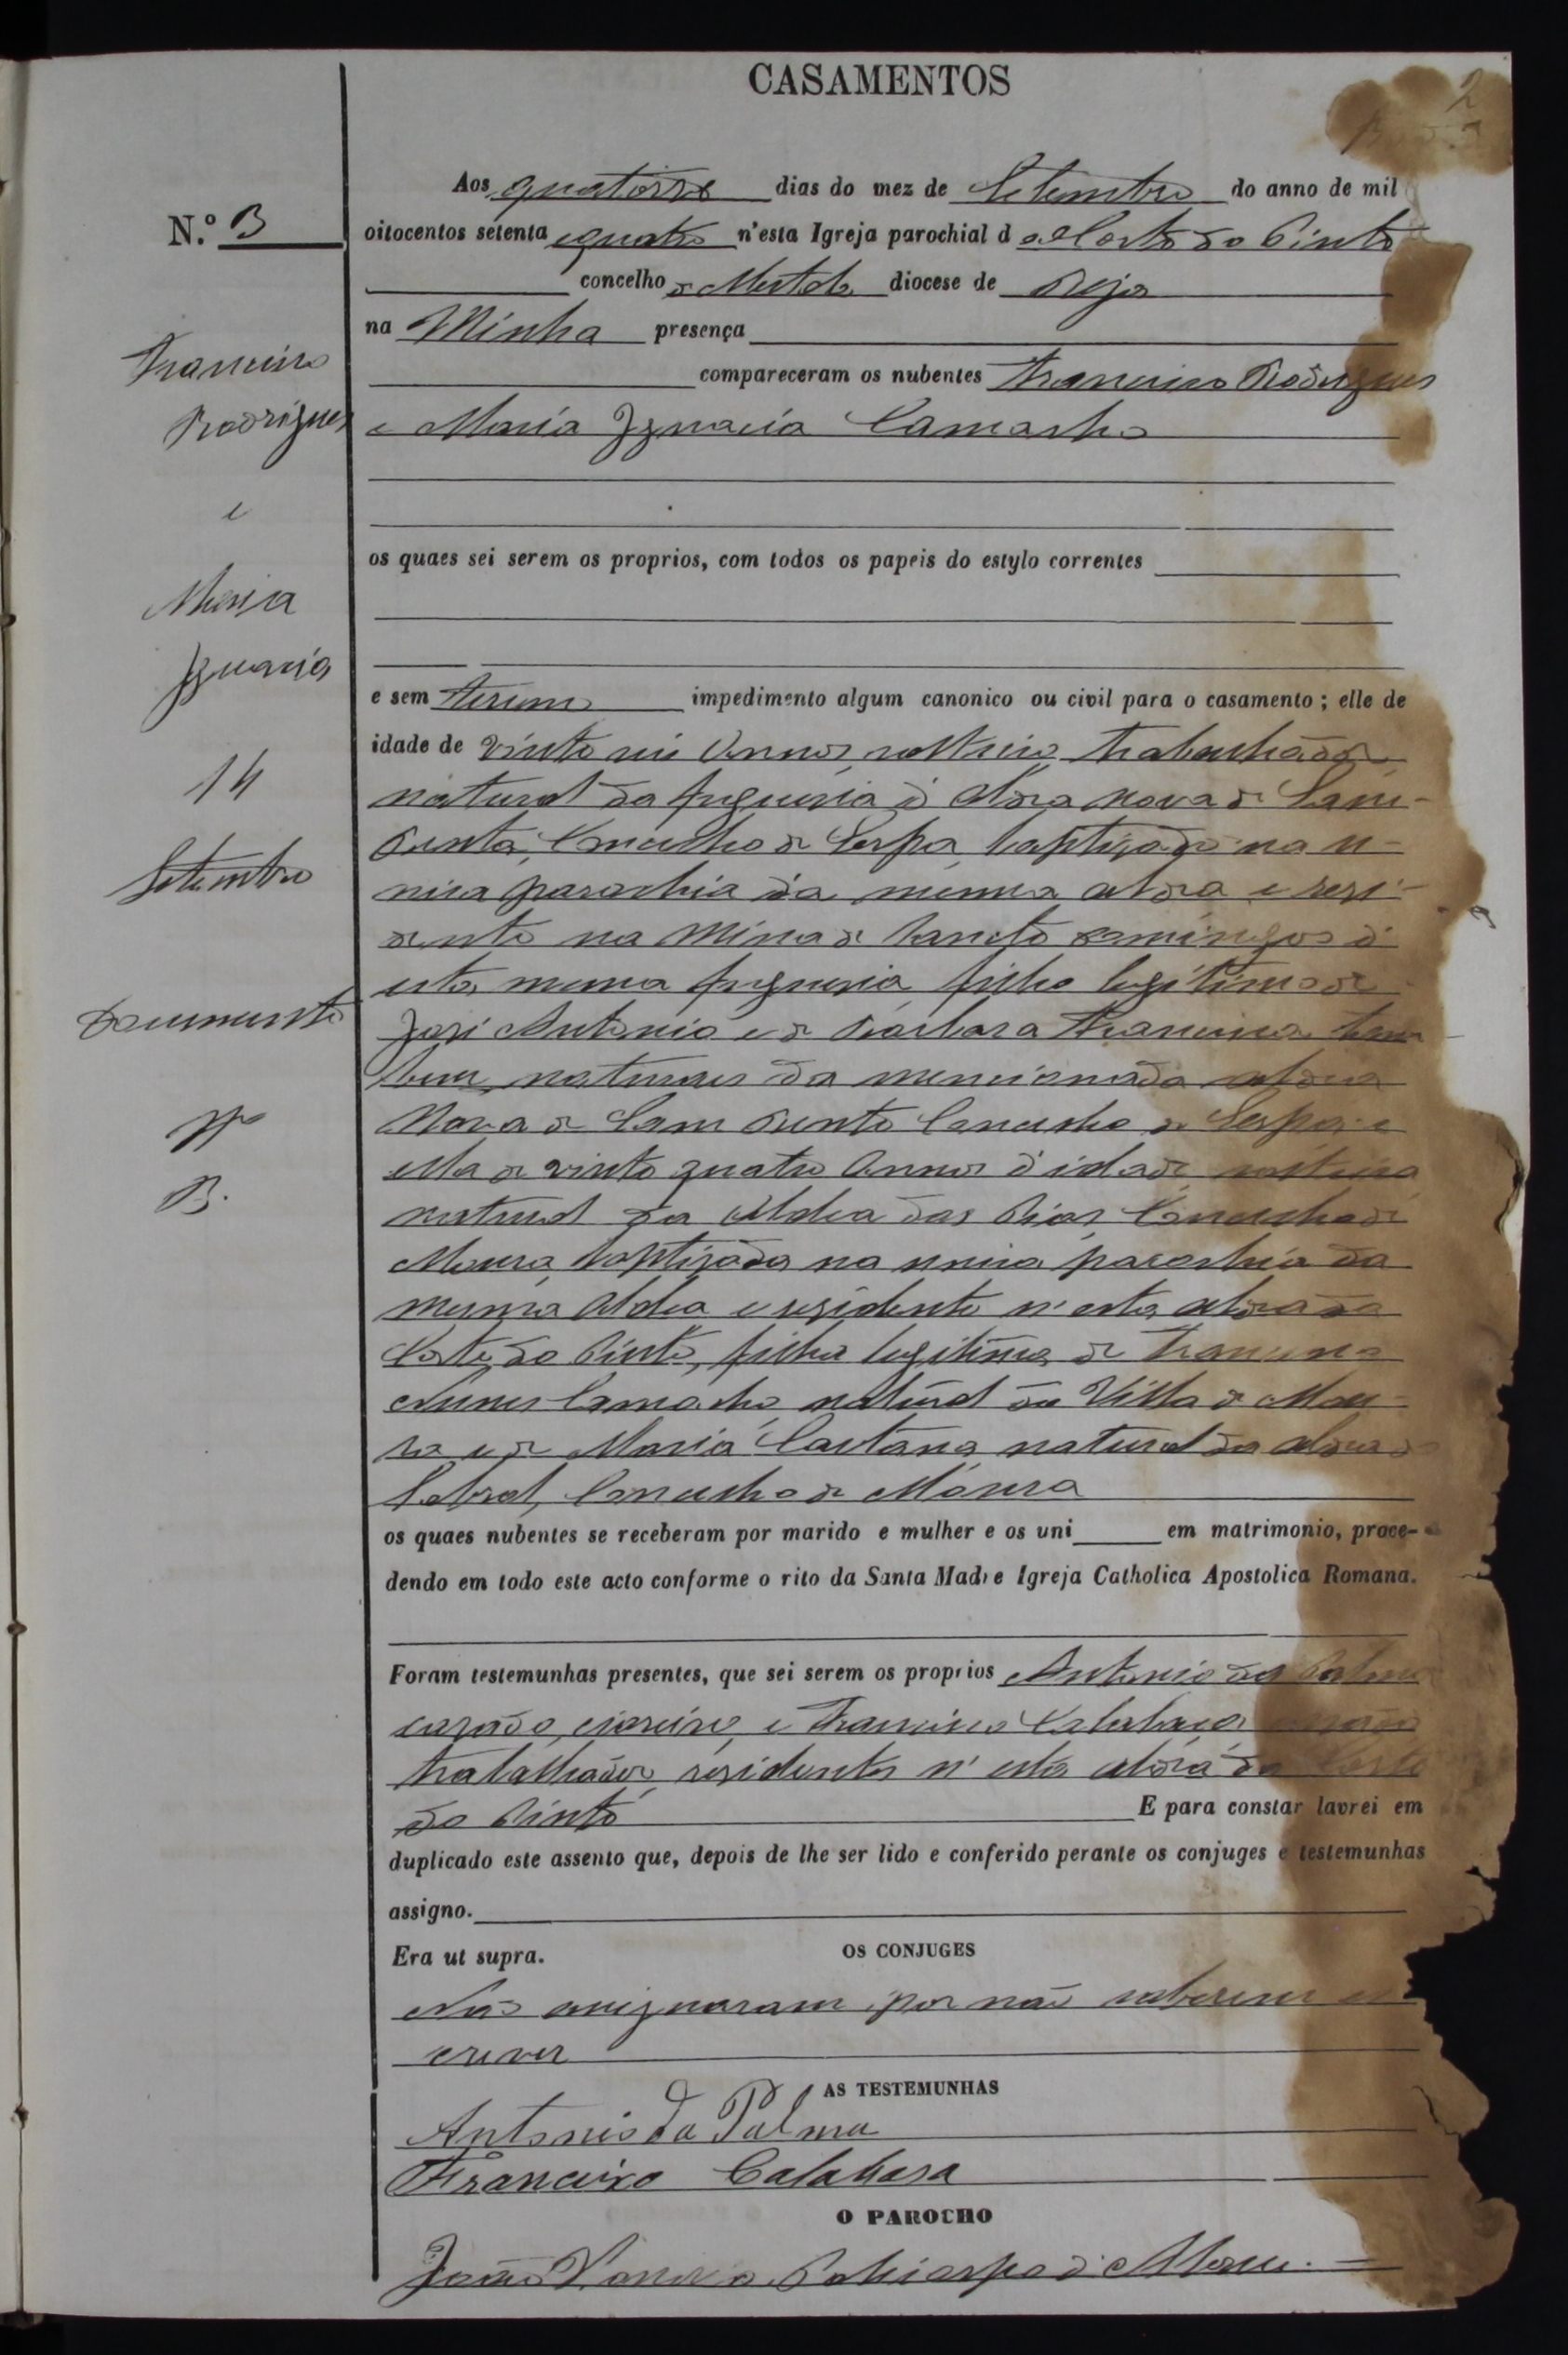 CASAMENTOS
2
N.º 3
Aos quatorze dias do mez de Setembro do anno de mil
oitocentos setenta equatro n'esta Igreja parochial d a Corte do Pinto
concelho de Mertola diocese de Beja
na Minha presença
compareceram os nubentes Francisco Rodrigues
e Maria Ignacia Camacho
os quaes sei serem os proprios, com todos os papeis do estylo correntes
e sem terem impedimento algum canonico ou civil para o casamento; elle de
idade de vinto seis Annos, solteiro, trabalhador
natural da freguesia d' Aldea Nova de Sam-
Bento, Concelho de Serpa, baptizado na u-
nica parochia da mesma aldea e resi-
dente na Mina de Sancto Domingos d'
esta mesma freguesia, filho legitimo de
José Antonio e de Barbara Francisca, tam
bem naturaes da mencionada aldea
Nova de Sam Bento Concelho de Serpa: e
ella de vinto quatro Annos d'idade solteira
natural da Aldea das Pias, Concelho de
Moura, baptizada na unica parochia da
mesma Aldea e residente n'esta aldea da
Corte do Pinto, filha legitima de Francisco
Nunes Camacho, natural da Villa de Mou-
ra e de Maria Caetana, natural da aldea do
Sobral, Concelho de Moura
os quaes nubentes se receberam por marido e mulher e os uni em matrimonio, proce-
dendo em todo este acto conforme o rito da Santa Madre Igreja Catholica Apostolica Romana.
Foram testemunhas presentes, que sei serem os proprios Antonio da Palma
cazado, e Francisco Calabaça
trabalhador, residentes n'esta aldea da Corte
do Pinto E para constar lavrei em
duplicado este assento que, depois de lhe ser lido e conferido perante os conjuges e testemunhas
assigno.
Era ut supra. OS CONJUGES
Não assignaram, por não saberem es
crever
AS TESTEMUNHAS
Antonio da Palma
Francisco Calabasa
O PAROCHO
João
Francisco
Rodrigues
e
Maria
Ignacia
14
Setembro
Documento
Nº
3.